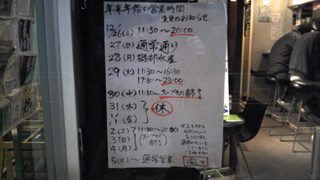 年末年始の営業時間
変更のお知らせ
12/26(土) 11:30～20:00
27(日) 通常通り
28(月)
29(火) 11:30～16:30
17:30～23:00
30(水) 11:30～スープ切れ終了
31(木) 休
1/1(金)
2(土) 11:30～20:00
3(日) スープ切れ
4(月) 終了
5(火)～通常営業